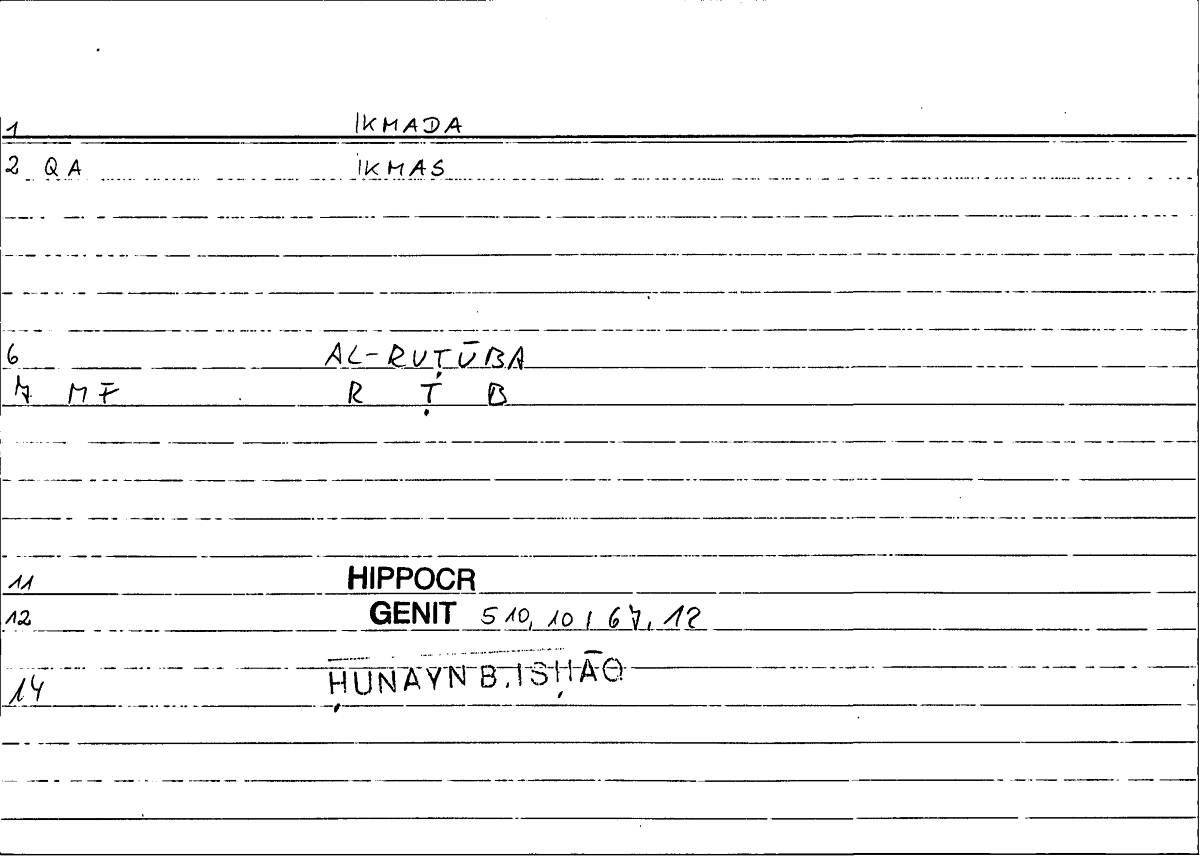 1 IKMADA
2 QA IKMAS
6 AL-RUṬŪBA
7 MF R Ṭ B
11 HIPPOCR
12 GENIT 510, 10 / 67, 12
14 ḤUNAYN B. ISḤĀQ